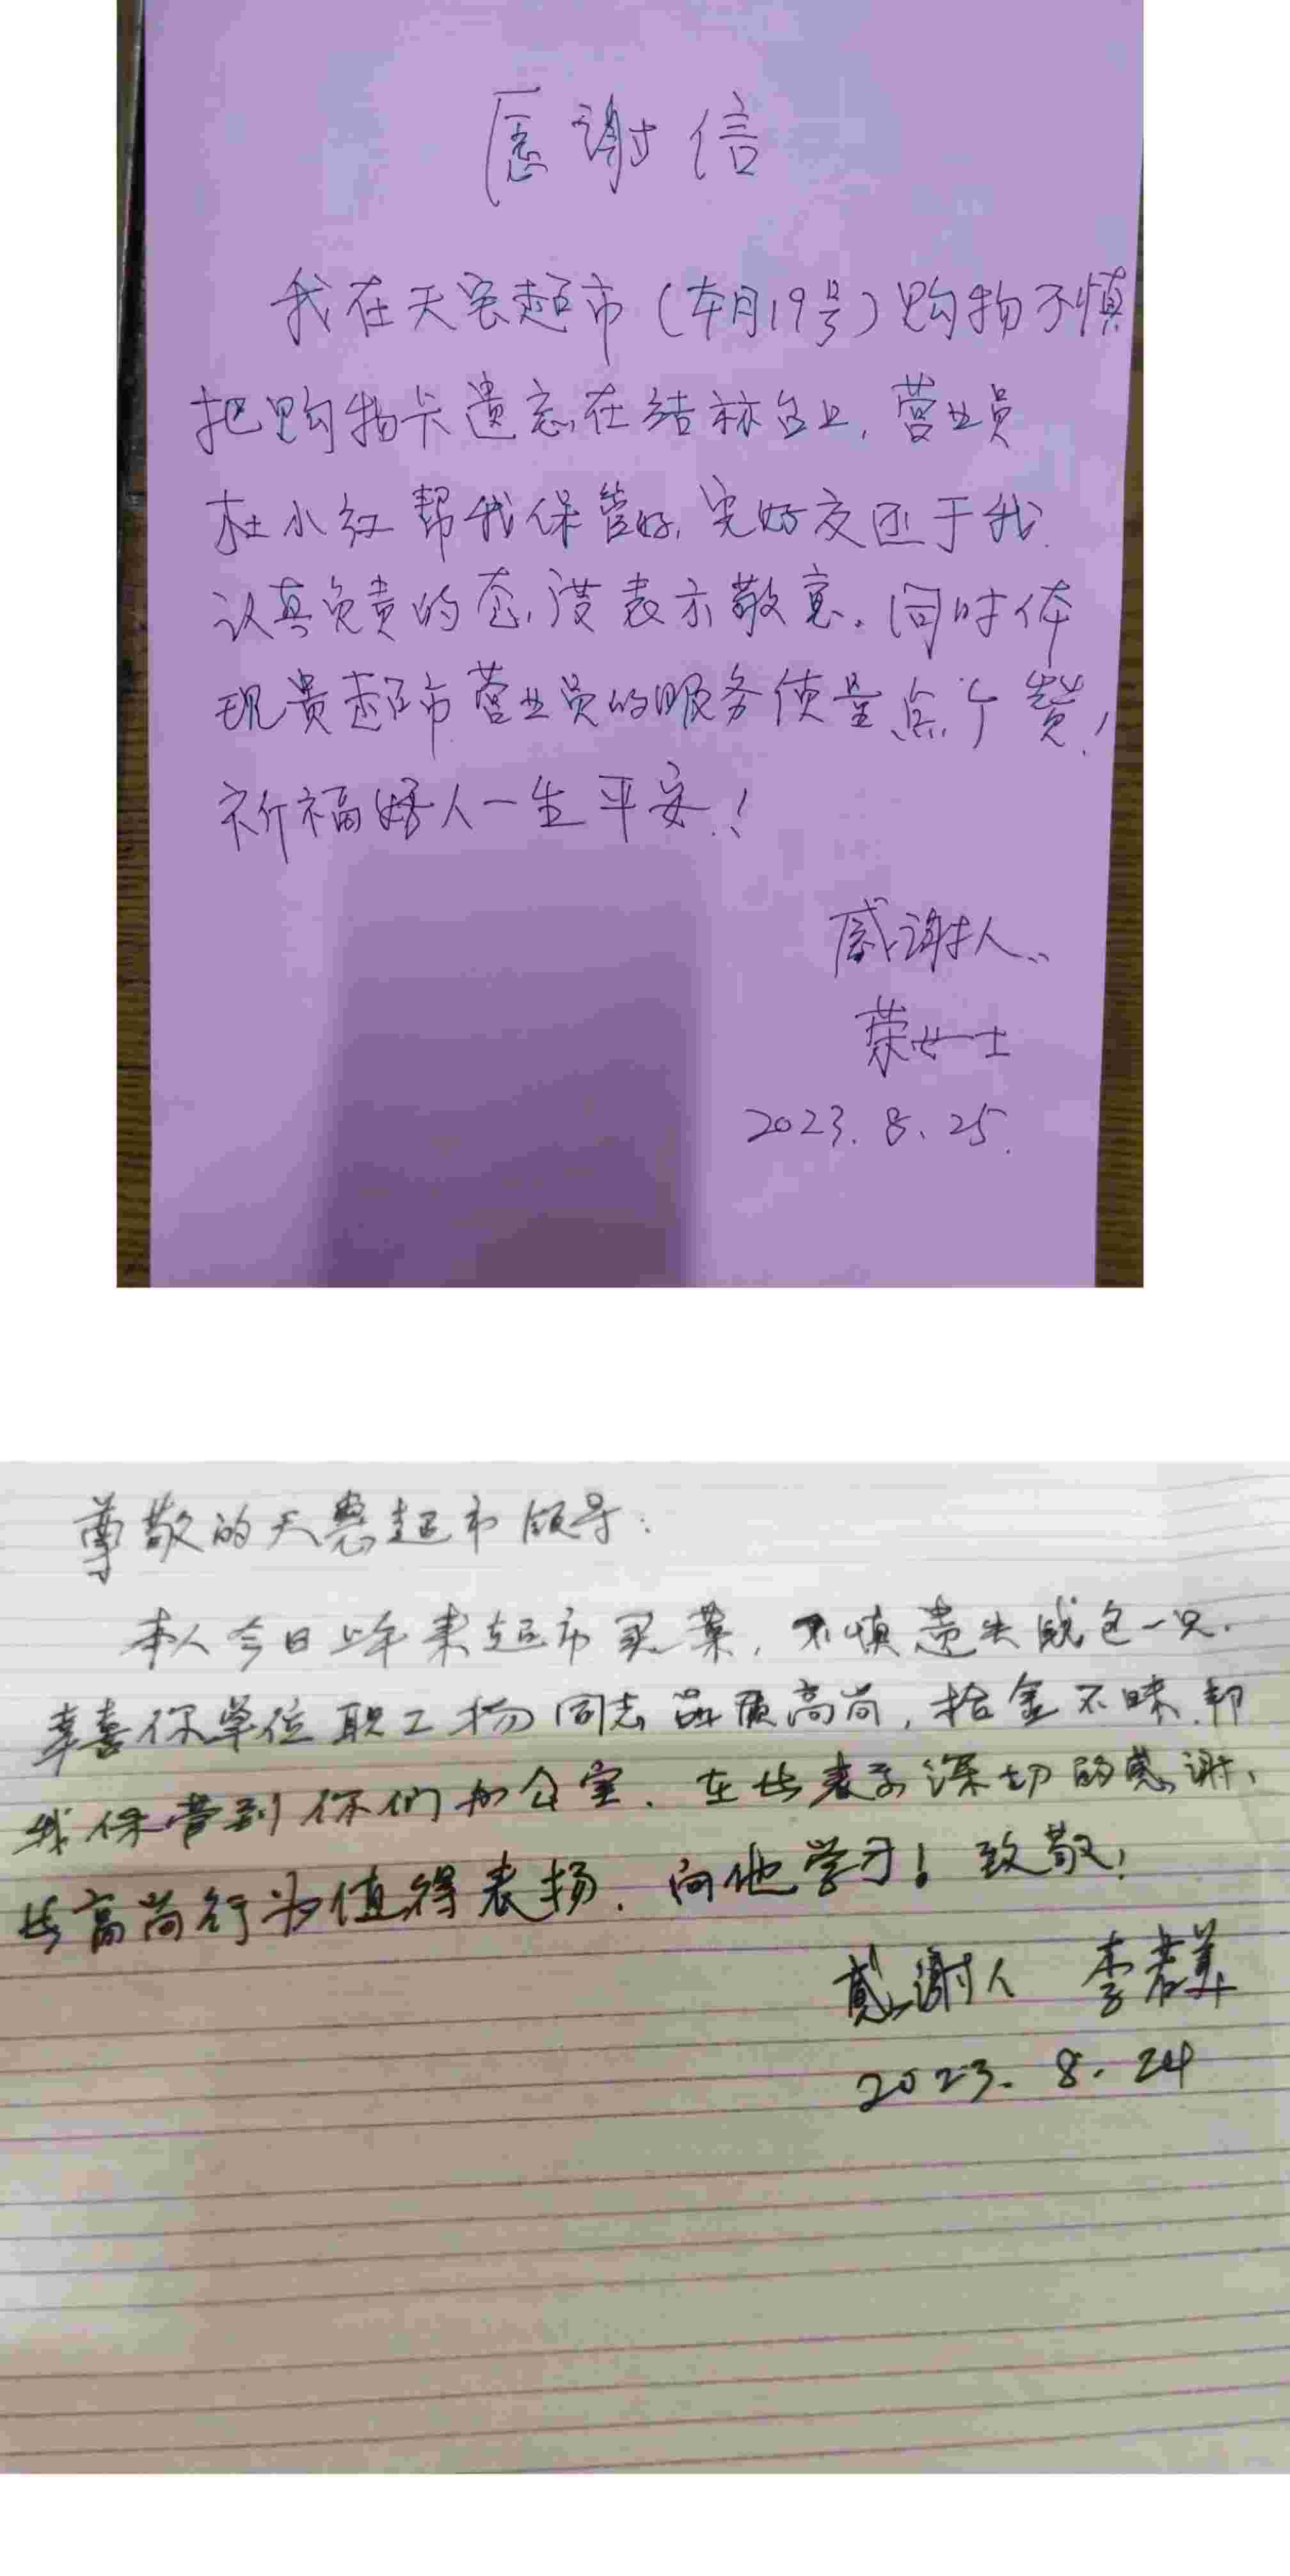 感谢信
我在天客超市（本月19号）购物不慎
把购物卡遗忘在结帐台上，营业员
杜小红帮我保管好，完好交还于我.
认真负责的态度表示敬意。同时体
现贵超市营业员的服务质量点个赞！
祈福好人一生平安！
感谢人：
荣女士
2023.8.25.
尊敬的天惠超市领导：
本人今日上午来超市买菜，不慎遗失钱包一只.
幸喜你单位职工杨同志品质高尚，拾金不昧.帮
我保管到你们办公室.在此表示深切的感谢、
此高尚行为值得表扬.向他学习！致敬！
感谢人 李君美
2023.8.24